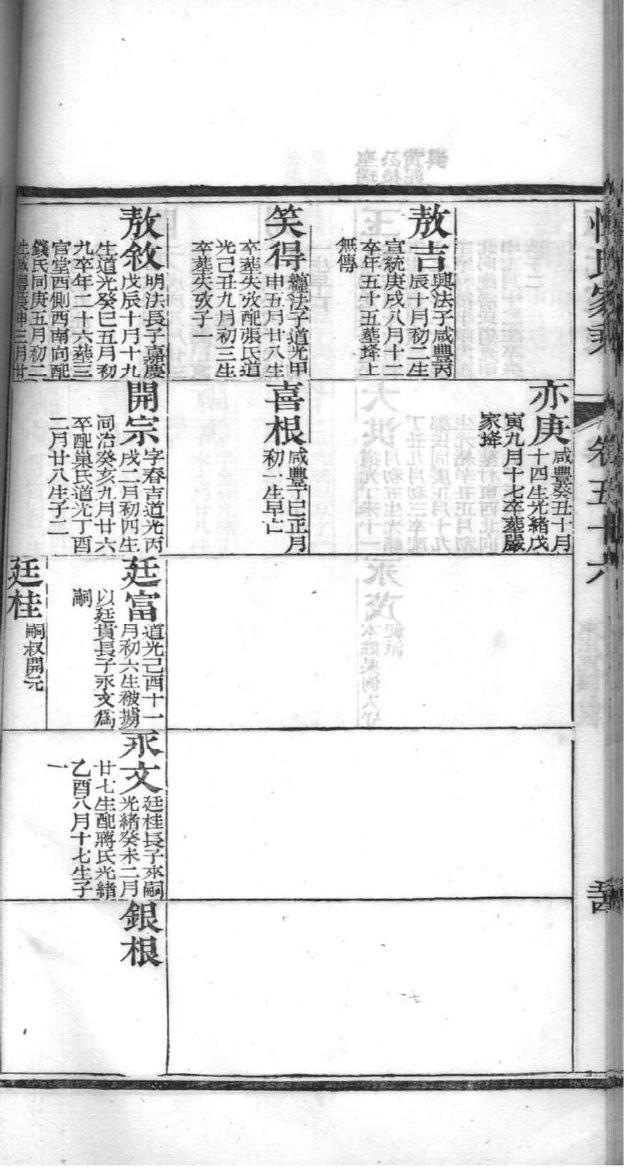 家乘
卷五十六
敖吉
興法子咸豐丙
辰十月初二生
宣統庚戌八月十二
卒年五十五墓埄上
無傳
笑得
纏法子道光甲
申五月廿八生
卒葬失攷配張氏道
光己丑九月初三生
卒葬失攷子一
敖敘
明法長子嘉慶
戊辰十月十九
生道光癸巳五月初
九卒年二十六葬三
官堂西側西南向配
錢氏同庚五月初二
亦庚
咸豐癸丑十月
十四生光緒戊
寅九月十七卒葬嚴
家埄
喜根
咸豐丁巳正月
初一生早亡
開宗
字春吉道光丙
戌二月初四生
同治癸亥九月廿六
卒配巢氏道光丁酉
二月廿八生子二
廷富
道光己酉十一
月初六生被擄
以廷貴長子永文為
嗣
廷桂
嗣叔開元
永文
廷桂長子來嗣
光緒癸未二月
廿七生配蔣氏光緒
乙酉八月十七生子
一
銀根